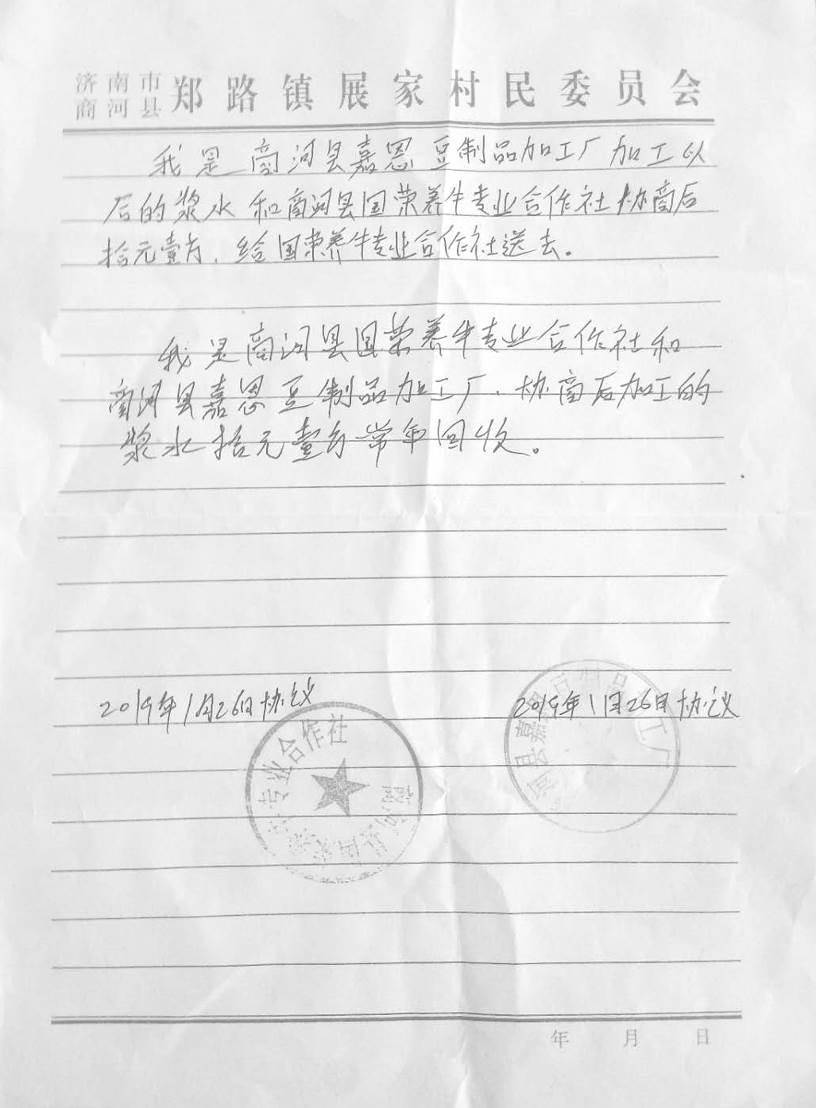 济南市
商河县 郑路镇展家村民委员会
我是商河县嘉恩豆制品加工厂加工以
后的浆水和商河县国荣养牛专业合作社协商后
拾元壹方，给国荣养牛专业合作社送去。
我是商河县国荣养牛专业合作社和
商河县嘉恩豆制品加工厂，协商后加工的
浆水拾元壹方常年回收。
2019年1月26日协议 2019年1月26日协议
商河县国荣养牛专业合作社
河县嘉恩豆制品加工厂
年 月 日